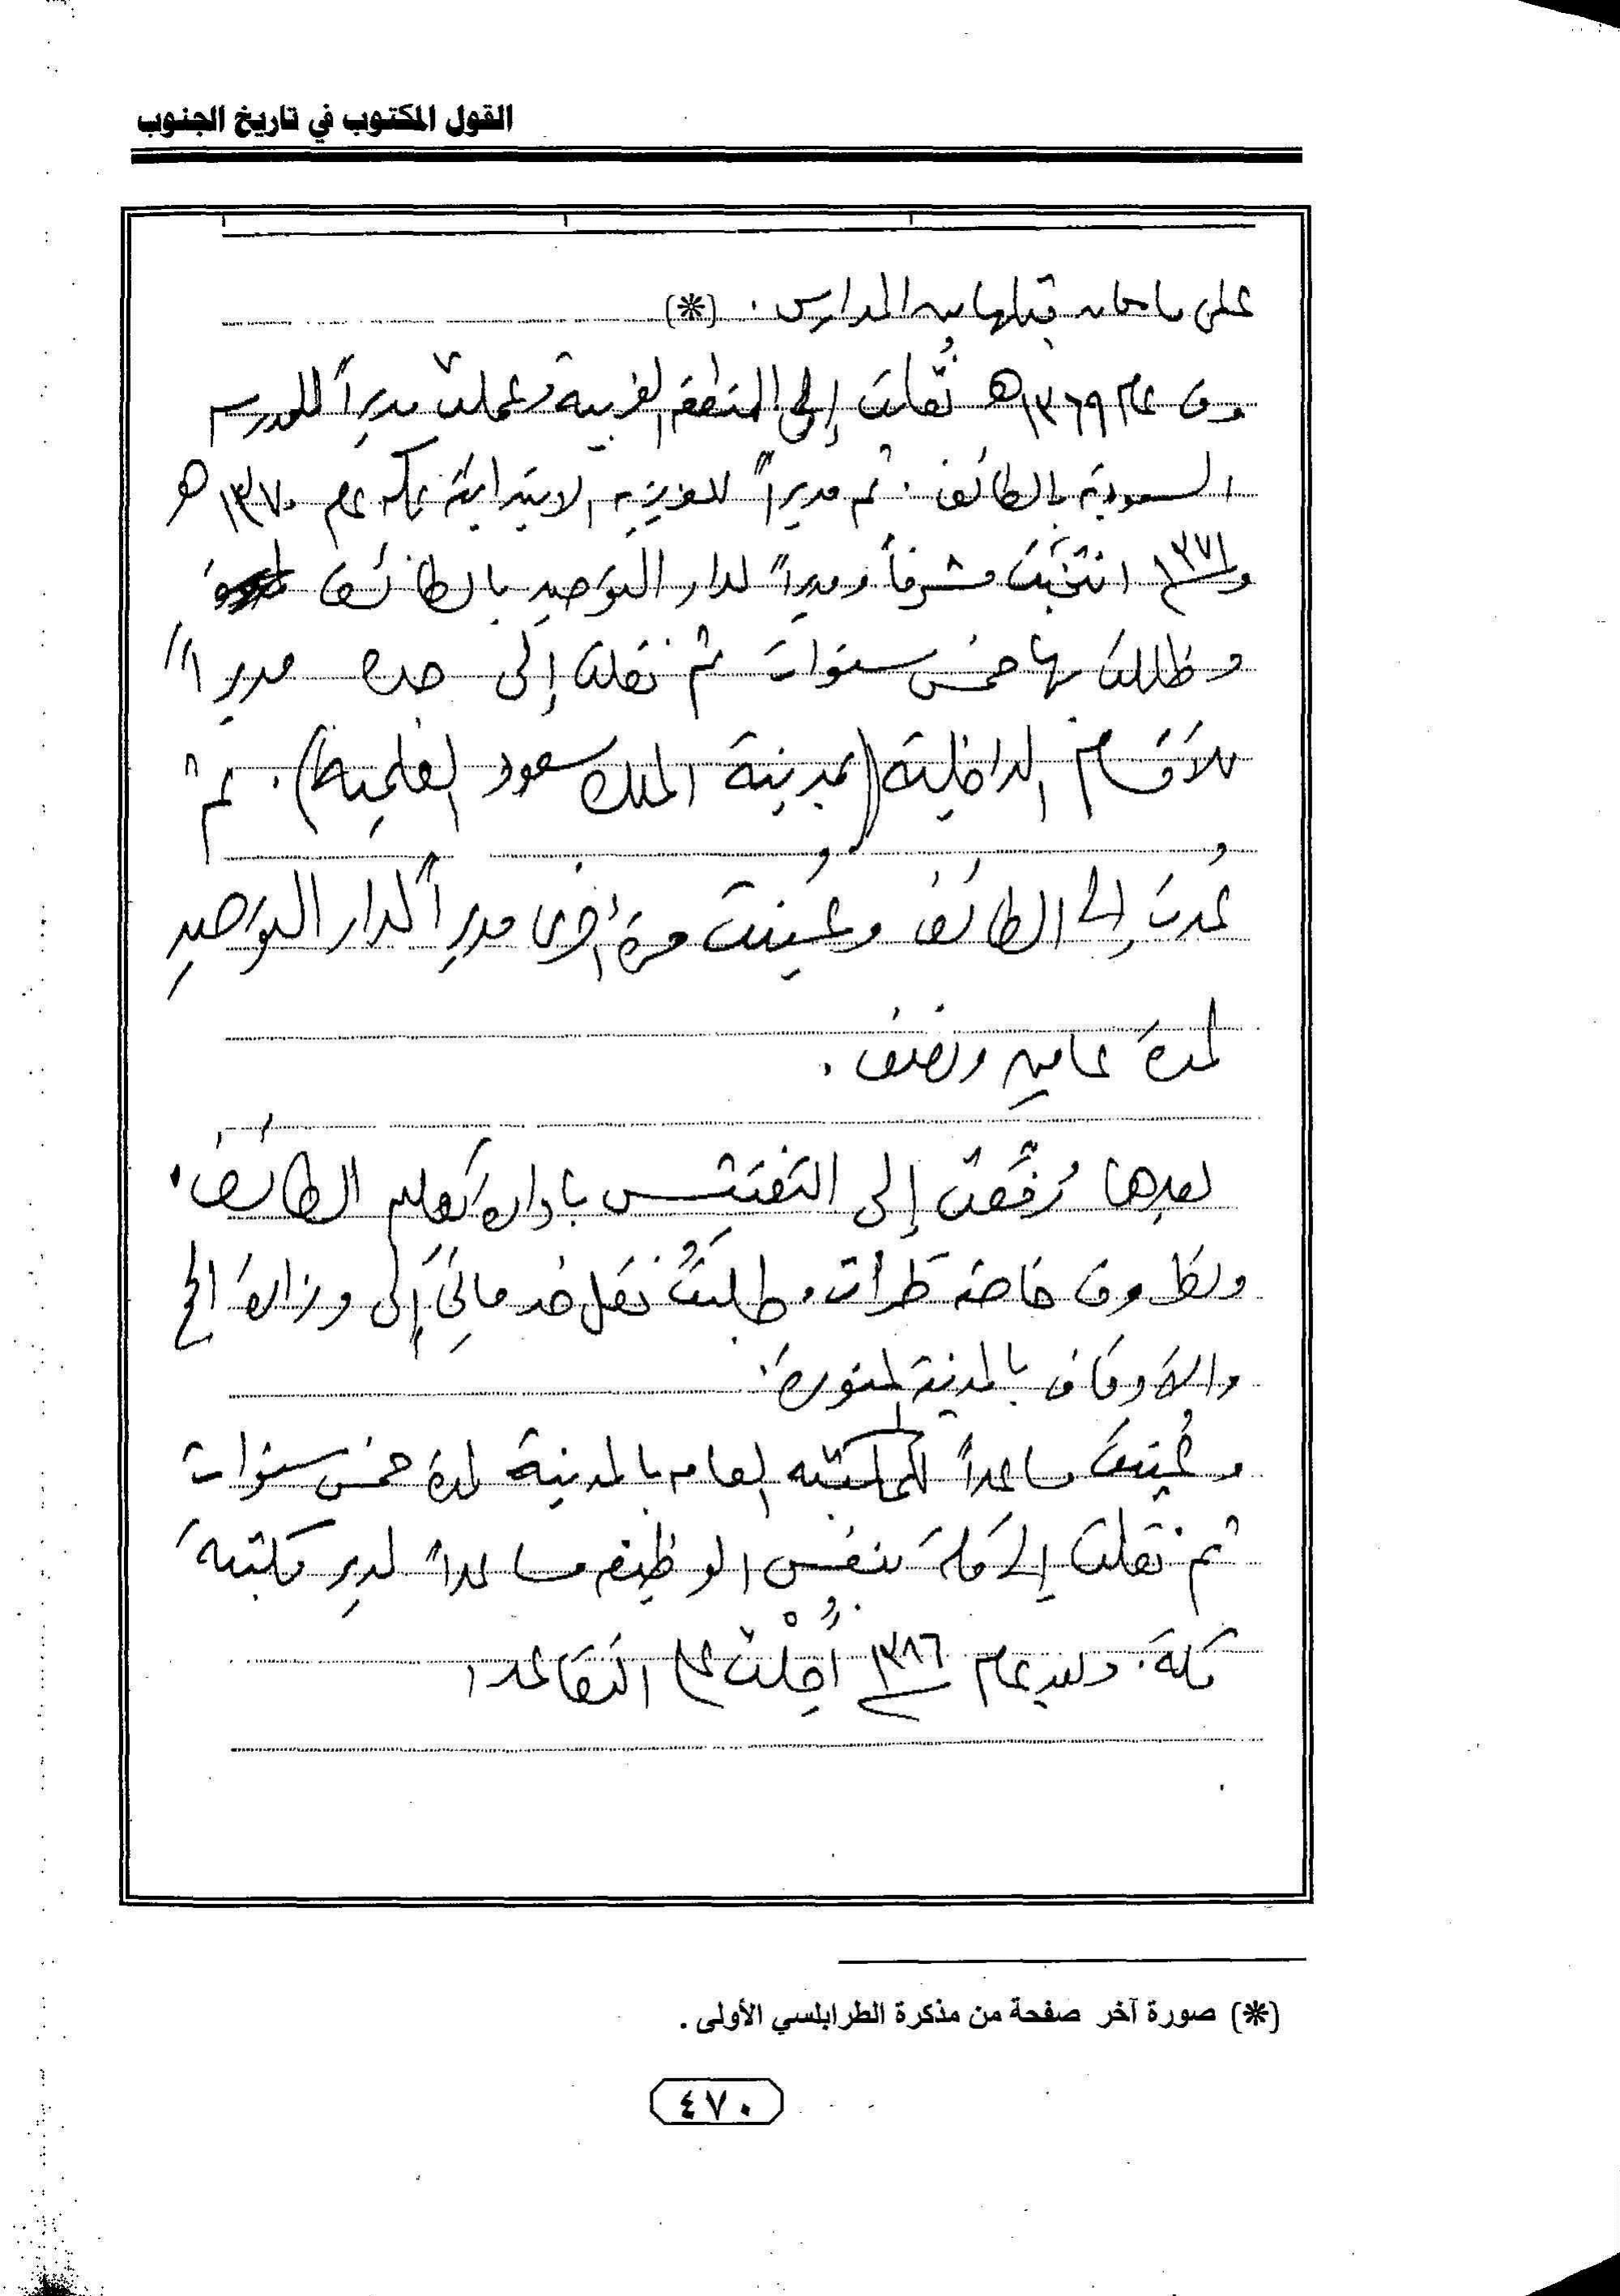 القول المكتوب في تاريخ الجنوب
على ما كان قبلها من المدارس . (*)
وفي عام ١٣٦٩هـ نُقلت إلى المنطقة الغربية وعملت مديراً للمدرسة
السعودية بالطائف . ثم مديراً للعزيزية الابتدائية بمكة عام ١٣٧٠هـ
و١٣٧١ انتخبت مشرفاً ومديراً لدار التوحيد بالطائف
وظللت بها خمس سنوات ثم نقلت إلى جده مديراً
للأقسام الداخلية (بمدينة الملك سعود العلمية) . ثم
عُدت إلى الطائف وعُينت مرة أخرى مديراً لدار التوحيد
لمدة عامين ونصف .
بعدها رُفّعت إلى التفتيش بادارة تعليم الطائف .
ولظروف خاصة طرأت . طلبتُ نقل خدماتي إلى وزارة الحج
والأوقاف بالمدينة المنورة .
وعُينت مساعداً للمكتبه العامه بالمدينة لمدة خمس سنوات
ثم نقلت إلى مكة بنفس الوظيفه مساعداً لمدير مكتبة
مكة . وبعد عام ١٣٨٦ أُحِلْتُ على التقاعد ،
(*) صورة آخر صفحة من مذكرة الطرابلسي الأولى .
٤٧٠